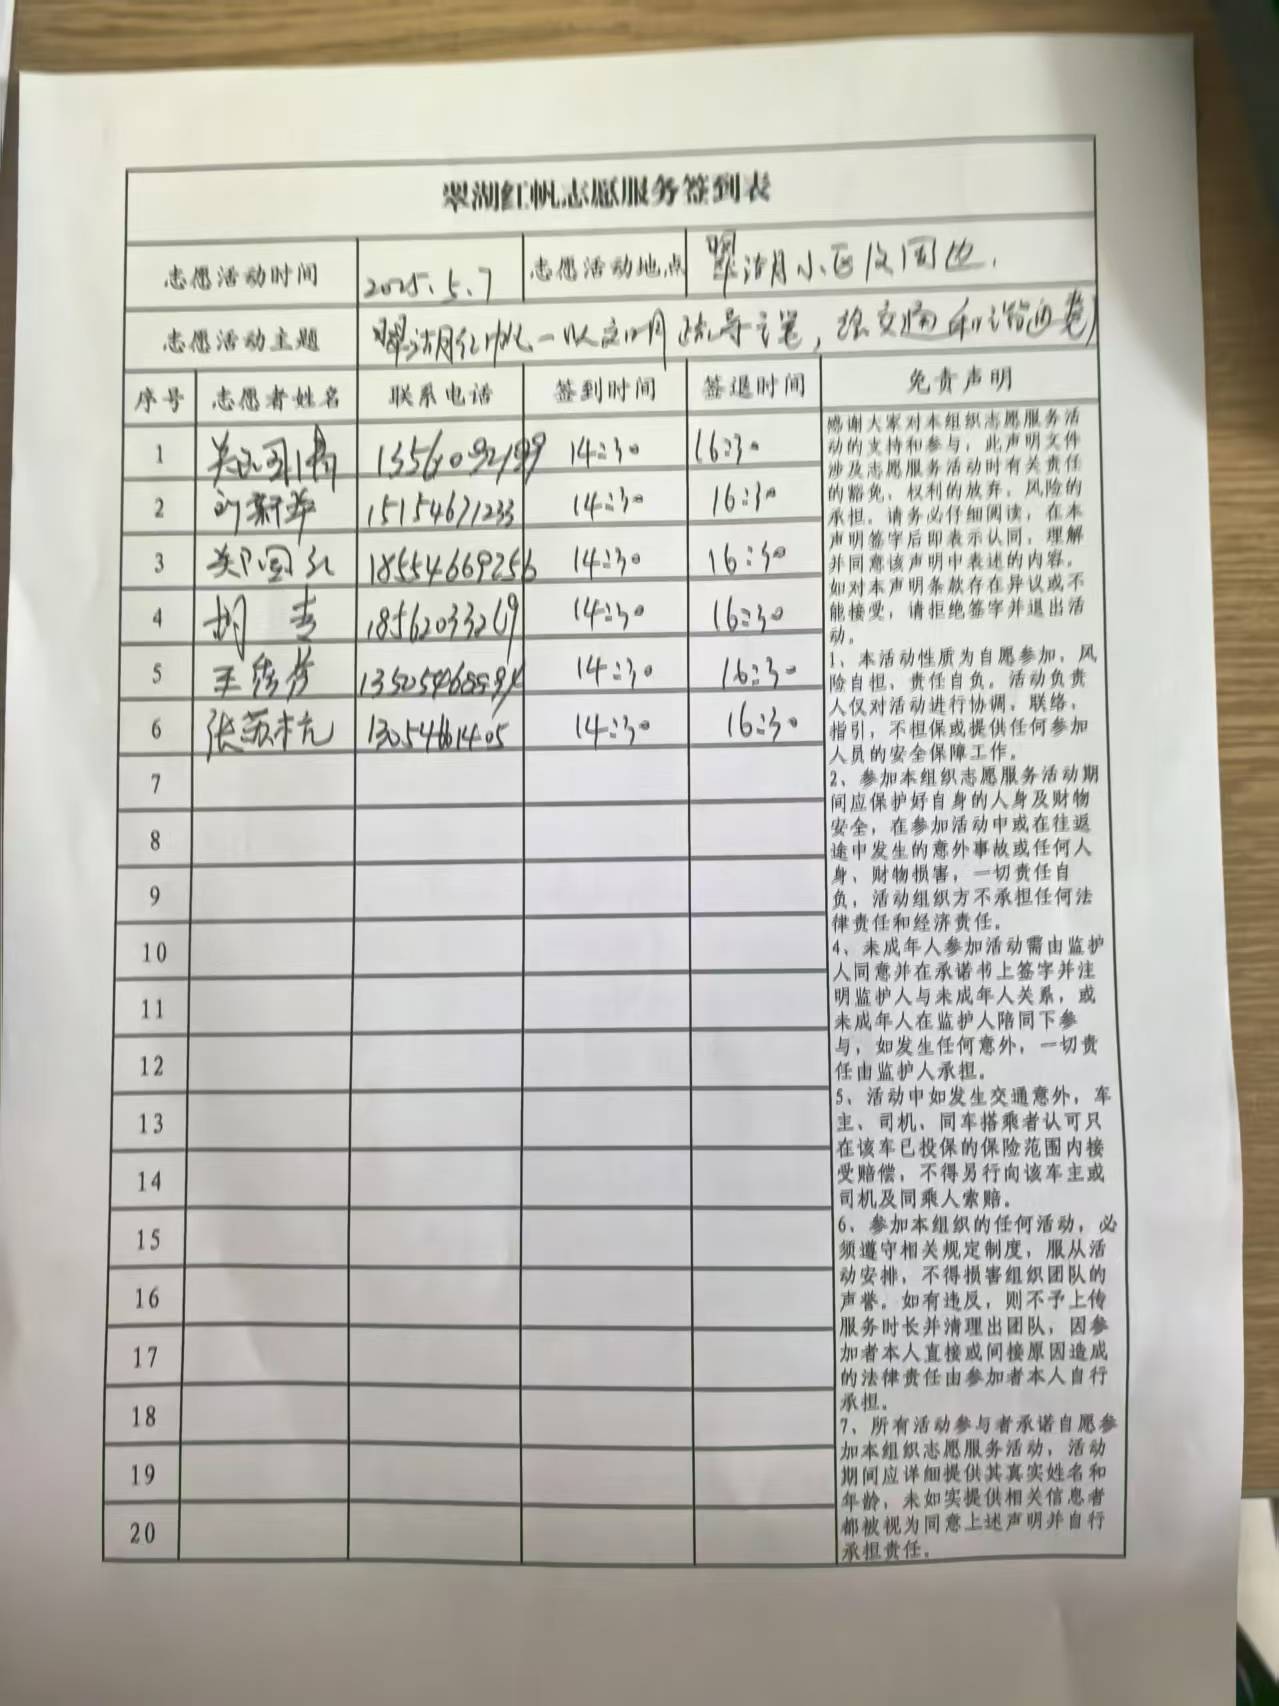 翠湖红帆志愿服务签到表
志愿活动时间 2025.5.7 志愿活动地点 翠湖小区及周边.
志愿活动主题 翠湖红帆一 疏导 , 交通和谐
序号 志愿者姓名 联系电话 签到时间 签退时间 免责声明
1 14:30 16:30
2 15154671233 14:30 16:30
3 18554669256 14:30 16:30
4 胡 14:30 16:30
5 王 14:30 16:30
6 张苏杭 13054661405 14:30 16:30
7
8
9
10
11
12
13
14
15
16
17
18
19
20
感谢大家对本组织志愿服务活
动的支持和参与，此声明文件
涉及志愿服务活动时有关责任
的豁免，权利的放弃，风险的
承担，请务必仔细阅读，在本
声明签字后即表示认同，理解
并同意该声明中表述的内容。
如对本声明条款存在异议或不
能接受，请拒绝签字并退出活
动。
1、本活动性质为自愿参加，风
险自担，责任自负。活动负责
人仅对活动进行协调，联络，
指引，不担保或提供任何参加
人员的安全保障工作。
2、参加本组织志愿服务活动期
间应保护好自身的人身及财物
安全，在参加活动中或在往返
途中发生的意外事故或任何人
身、财物损害，一切责任自
负，活动组织方不承担任何法
律责任和经济责任。
4、未成年人参加活动需由监护
人同意并在承诺书上签字并注
明监护人与未成年人关系，或
未成年人在监护人陪同下参
与，如发生任何意外，一切责
任由监护人承担。
5、活动中如发生交通意外，车
主、司机、同车搭乘者认可只
在该车已投保的保险范围内接
受赔偿，不得另行向该车主或
司机及同乘人索赔。
6、参加本组织的任何活动，必
须遵守相关规定制度，服从活
动安排，不得损害组织团队的
声誉。如有违反，则不予上传
服务时长并清理出团队，因参
加者本人直接或间接原因造成
的法律责任由参加者本人自行
承担。
7、所有活动参与者承诺自愿参
加本组织志愿服务活动，活动
期间应详细提供其真实姓名和
年龄，未如实提供相关信息者
都被视为同意上述声明并自行
承担责任。